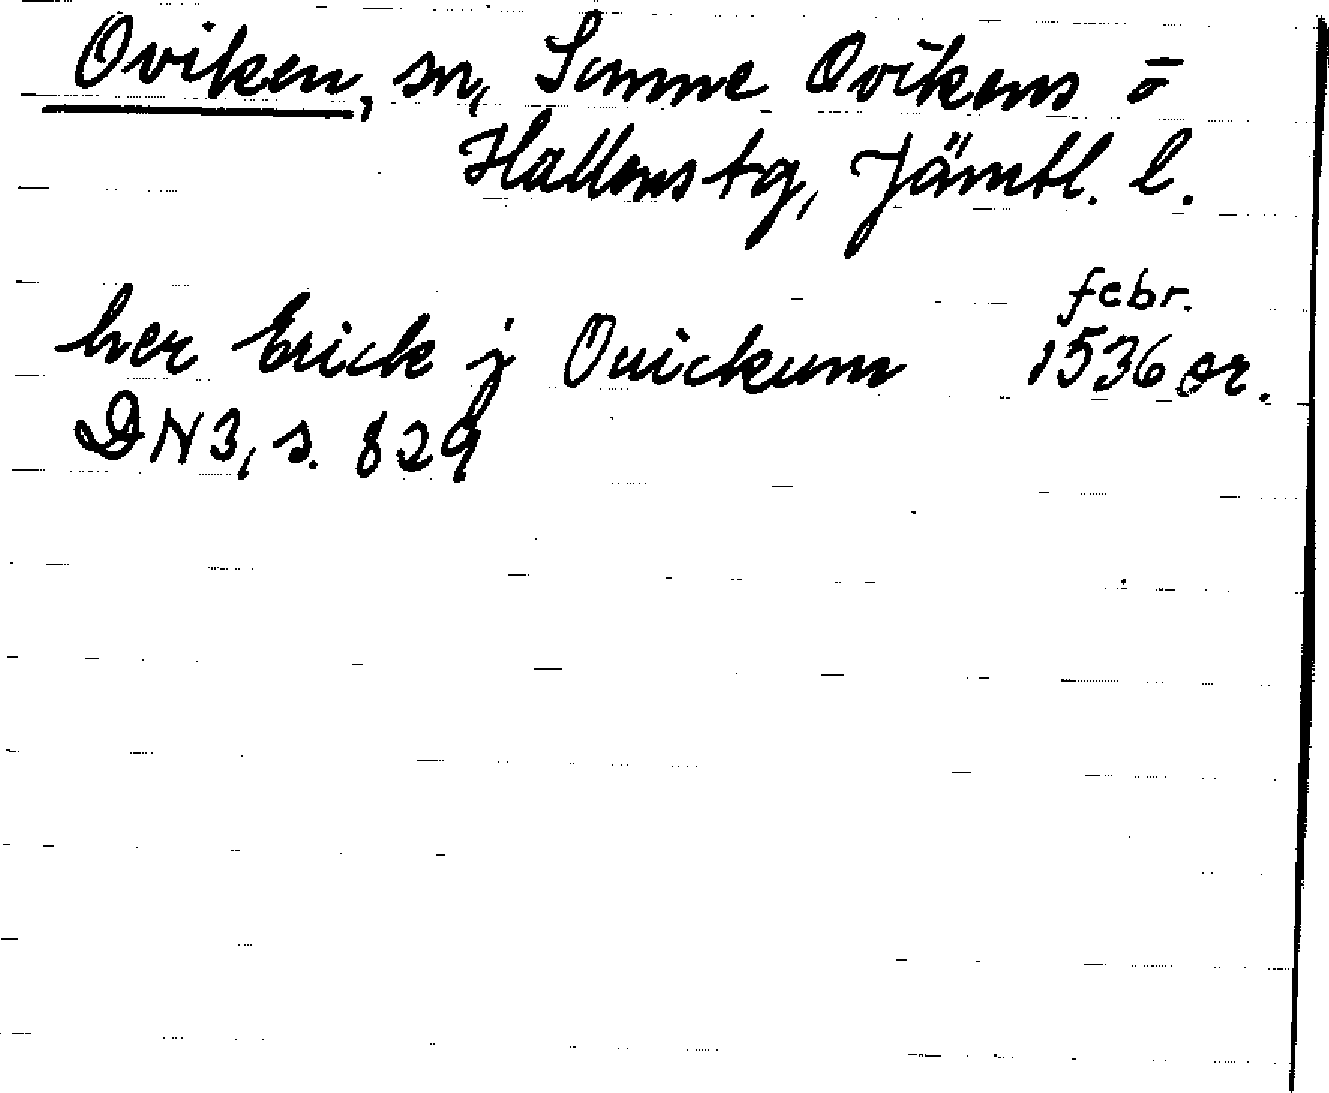 Oviken, sn, Sunne Ovikens o
Hallens tg, Jämtl. l.
febr.
her Erick j Ouickum 1536 or.
DN3, s. 829